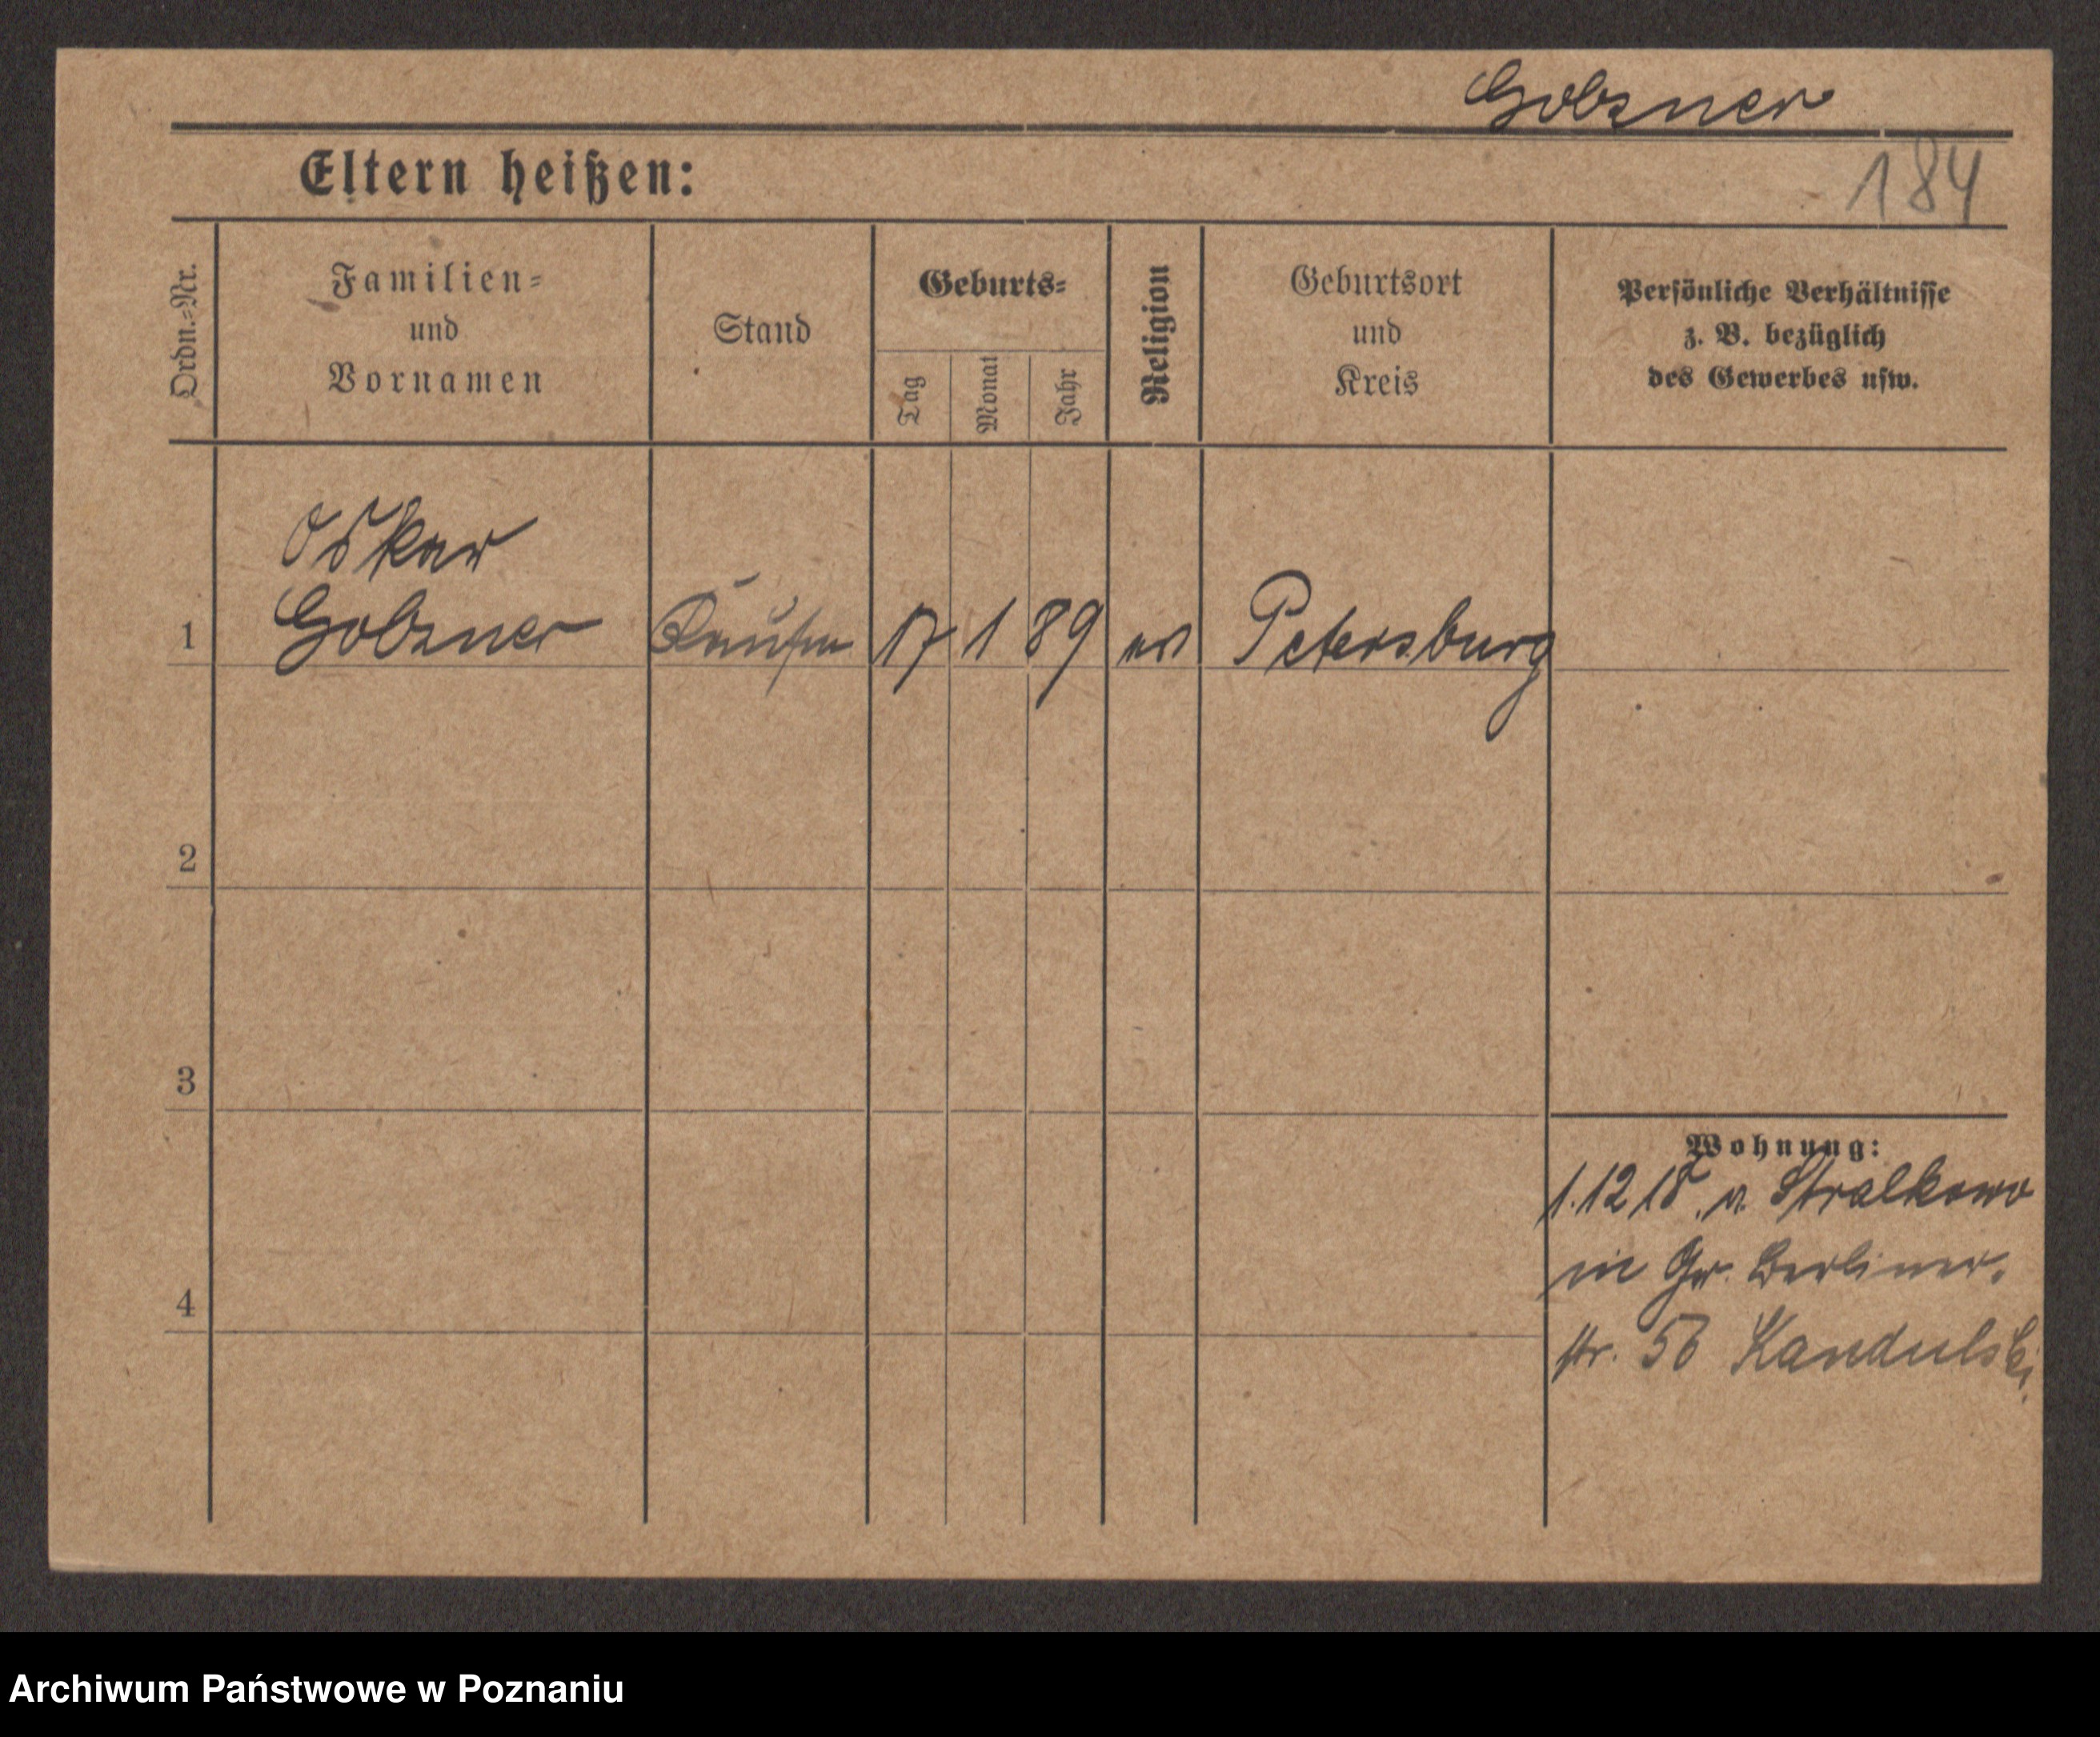 Golzner
Eltern heißen:
184
Ordn.-Nr.
Familien-
und
Vornamen
Stand
Geburts-
Tag
Monat
Jahr
Religion
Geburtsort
und
Kreis
Persönliche Verhältnisse
z. B. bezüglich
des Gewerbes usw.
Oskar
1 Golzner 17 1 89 Petersburg
2
3
4
Wohnung:
1.12 18. v. Stralkowo
in Gr. Berliner-
str. 56 Kandulski
Archiwum Państwowe w Poznaniu